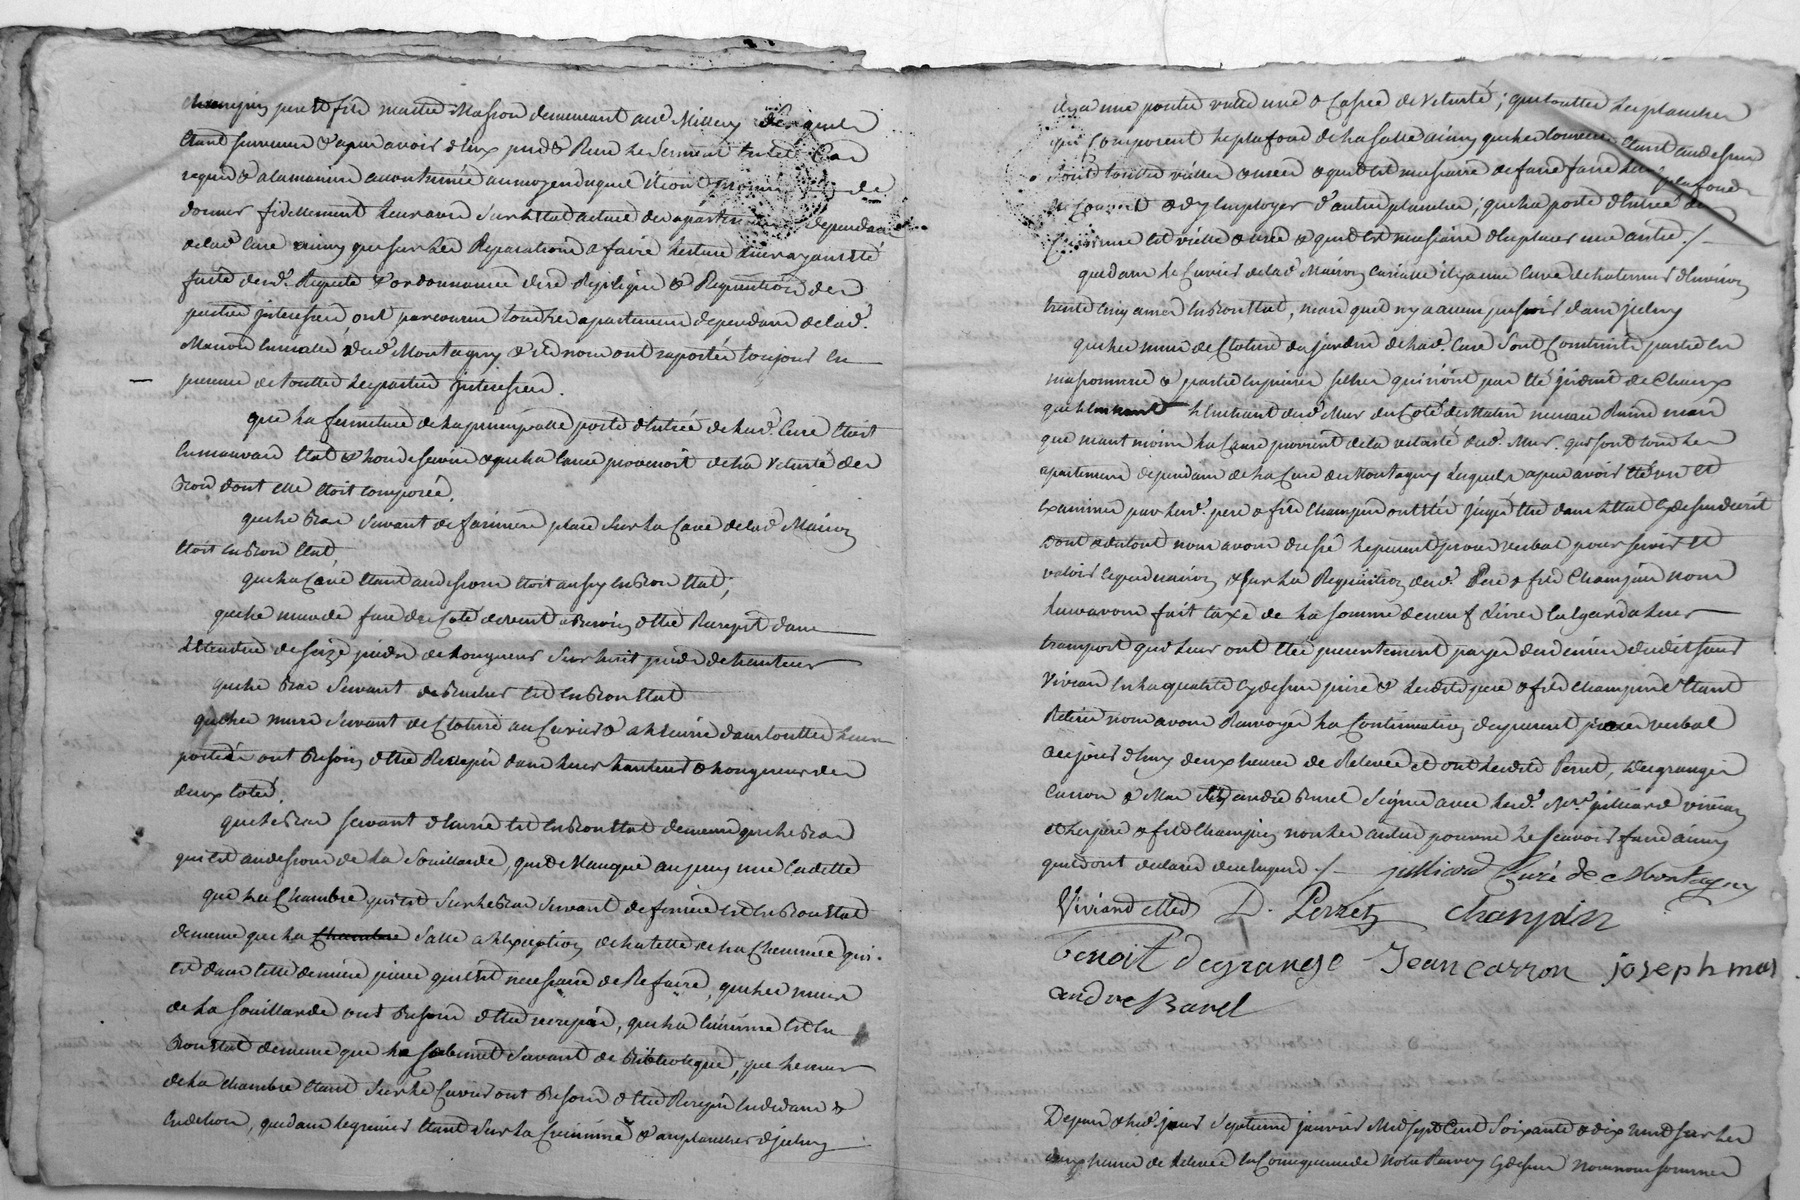 champin pere et fils maitre Masson demeurant aud. Millery lesquels
étant survenus & apres avoir d'eux pris & Receu le serment en tel cas
requis & a la maniere accoutumée au moyen duquel ils ont promis de
donner fidellement leur avis sur l'Etat actuel des apartements dependants
de lad. cure ainsy que sur les Reparations a faire lecture a eux ayant été
faite desd. Requete & ordonnance dire Replique & Requisition des
parties interessées, ont parcouru tous les apartements dependants de lad.
Maison curialle dud. Montagny & ils nous ont raportés toujours en
presence de touttes les parties interessées.
que la fermeture de la principalle porte d'entrée de lad. cure étoit
en mauvais état & hors de service & que la cause provenoit de la vetusté des
Bois dont elle étoit composée.
que le Bas servant de farinière placé sur la Cave de lad. Maison
étoit en Bon état
que la Cave étant au dessous étoit aussy en Bon état;
que le mur de face du Coté de vent a Besoin d'être Recrepit dans
l'étendue de seize pieds de longueur sur huit pieds de hauteur
que le Bas servant de Bucher est en Bon état
que les murs servant de Cloture au Cuvier & a l'écurie dans touttes leurs
portées ont Besoin d'être Recrepis dans leurs hauteurs & longueurs des
deux cotés.
que le Bas servant d'écurie est en Bon état de meme que le Bas
qui est au dessous de la souillarde, qui Manque au puis une Cadette
que la Chambre qui est sur le Bas servant de feniere est en Bon état
de meme que la Chambre Salle a l'exception de la tette de la Cheminée qui
est dans cette derniere piece qu'il est necessaire de Refaire, que les murs
de la souillarde ont Besoin d'être recrepis, que la cuisine est en
Bon état de meme que le Cabinet servant de Biblioteque, que les murs
de la chambre étant sur le Cuvier ont Besoin d'être Recrepis en dedans &
en dehors, que dans le grenier étant sur la Cuisine & au plancher d'iceluy
il y a une poutre vieille usée & Cassée de Vetusté; que touttes les planches
qui Composent le plafond de la salle ainsy que les étant au dessus
sont touttes vieilles & usées & qu'il est necessaire de faire faire les plafonds
& d'y Employer d'autres planches; que la porte d'Entrée de
Cuisine est vieille & usée & qu'il est necessaire d'en placer une autre ./.
que dans le Cuvier de lad. Maison Curialle il y a une Cuve de la teneur d'environ
trente cinq anées en Bon état, mais qu'il n'y a aucun pressoir dans iceluy
que les murs de Cloture du jardin de lad. Cure sont Construits partie en
massonnerie & partie en pierre seche qui n'ont pas été induit de Chaux
que l'enchant dud. Mur du Coté de Matin menace Ruine mais
que neant moins la Cause provient de la vetusté dud. Mur. qui sont tous les
apartements dependants de la Cure de Montagny lesquels apres avoir été vu et
examinés par lesd. pere & fils champin ont été jugés être dans l'état cy dessus decrit
dont & du tout nous avons dressé le present procès verbal pour servir et
valoir ce que de raison & sur la Requisition desd. Pere & fils Champin nous
leur avons fait taxe de la somme de neuf Livres eu egard a leur
transport qui leur ont été presentement payés des deniers dudit sieur
Viviand en la qualité cy dessus prise & lesdits pere & fils Champin s'étant
Retirés nous avons Renvoyé la Continuation du present procès verbal
aujourd'huy deux heures de Relevée et ont lesdits Perret, Degrange
Carron & Mas & andré Burel signés avec led. Mre. jullicard Viviand
et les pere & fils Champin non les autres pour ne le scavoir faire ainsy
qu'ils ont declaré de ce Requis ./. jullicard Curé de Montagny
Viviand D. Perret Champin
Benoit degrange Jean carron joseph mas
andre Burel
Depuis & led. jour septieme janvier Mil sept Cent soixante & dix neuf sur les
deux heures de Relevée en Consequence de notre Renvoy Cy dessus nous nous sommes